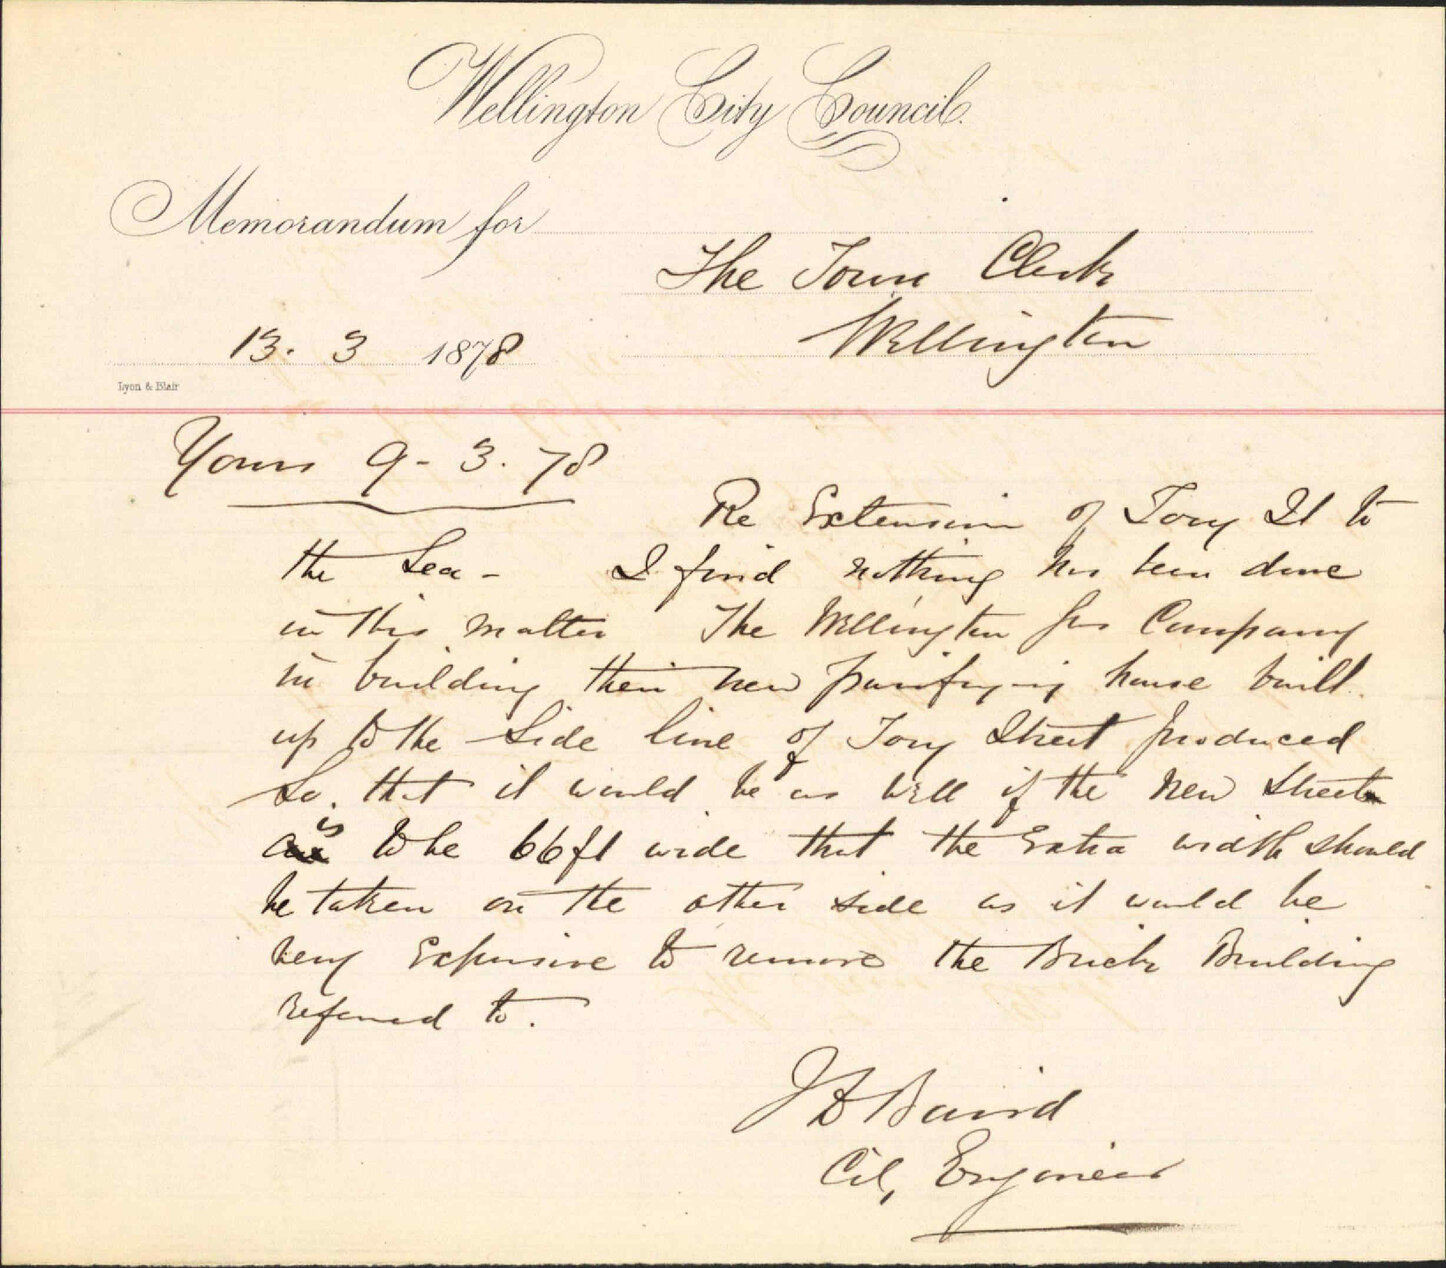 Wellington City Council.
Memorandum for
The Town Clerk
Wellington
13. 3 1878
Lyon & Blair
Yours 9-3.78
Re Extension of Tory St to
the Sea - I find nothing has been done
in this matter The Wellington Gas Company
in building their new purifying house built
up to the Side line of Tory Street produced
So. that it would be as well if the New Street
is to be 66ft wide that the Extra width should
be taken on the other side as it would be
very Expensive to remove the Brick Building
referred to.
J D Baird
City Engineer